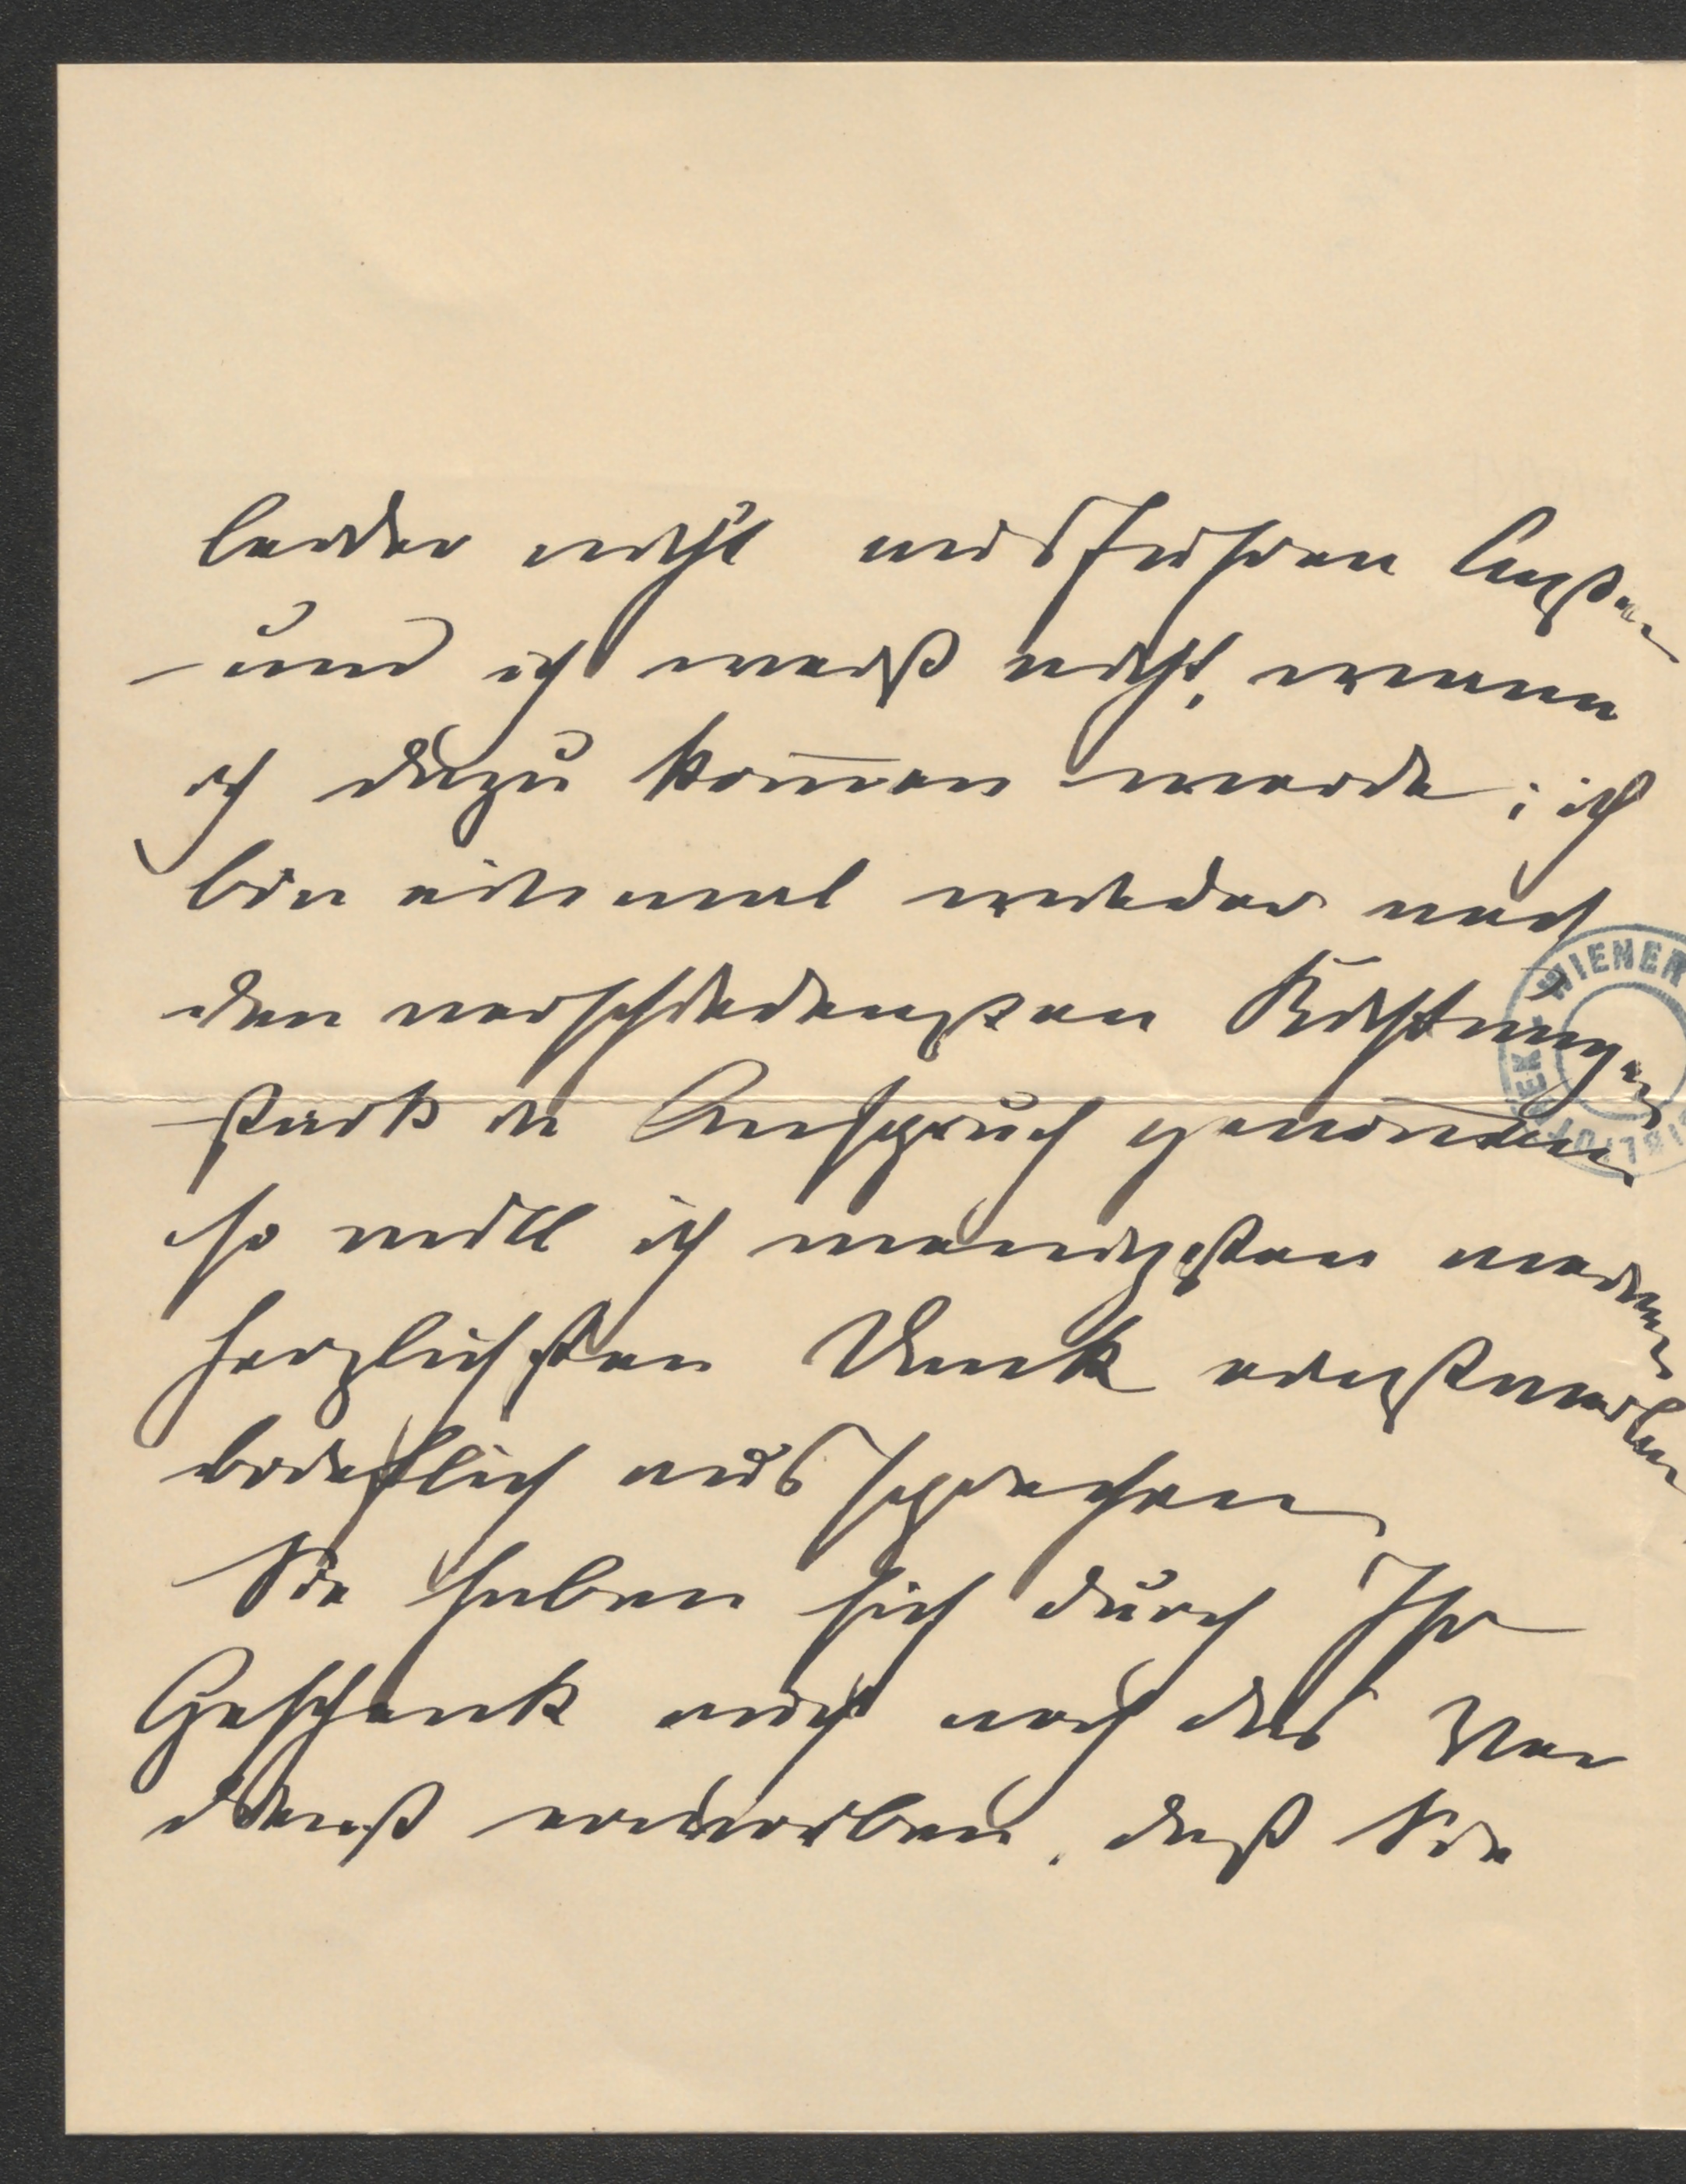 leider nicht ausführen laßen
und ich weiß nicht, wann
ich dazu kom̅en werde; ich
bin einmal wieder nach
den verschiedensten Richtungen
stark in Anspruch genom̅en
so will ich wenigstens meinen
herzlichsten Dank einstweilen
brieflich aussprechen
Sie haben sich durch Ihr
Geschenk auch noch das Ver
dienst erworben, daß Sie
WIENER